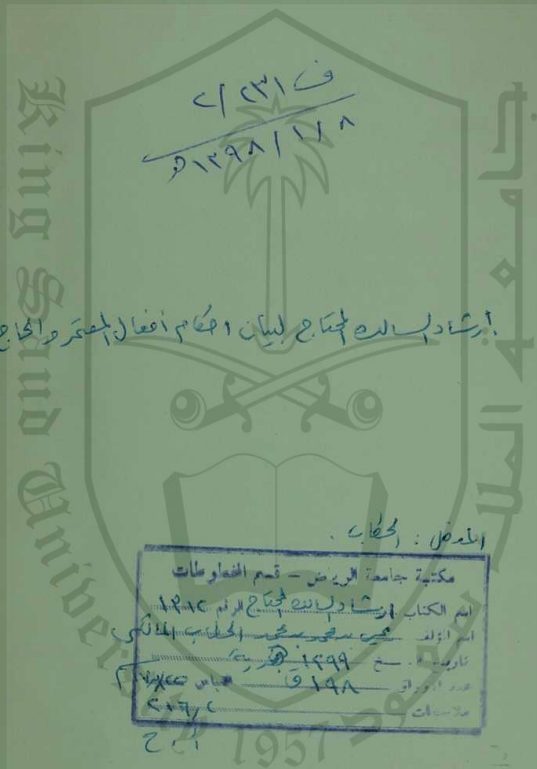 ف ٢٣١ / ٢
٨ / ١ / ١٣٩٨ هـ
ارشاد السالك المحتاج لبيان احكام أفعال المعتمر والحاج
المؤلف : الحطاب .
مكتبة جامعة الرياض - قسم المخطوطات
اسم الكتاب ارشاد السالك المحتاج الرقم ١٣١٢
اسم المؤلف يحيى بن محمد بن محمد الحطاب المالكي
تاريخ النسخ ١٢٩٩ هـ
عدد الأوراق ١٩٨ ق القياس
ملاحظات ٢١٦/٢
King Saud University
1957